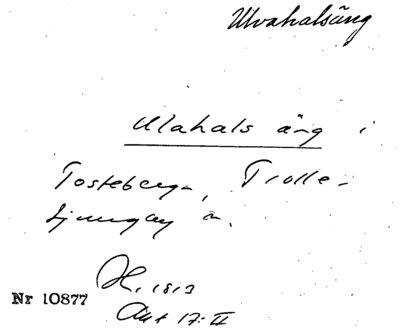 Ulvahalsäng
Ulahals äng i
Tosteberga, Trolle-
Ljungby sn.
H. 1813
Nr 10877
Akt 17:II